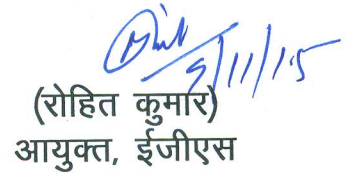 9/11/15
(रोहित कुमार)
आयुक्त, ईजीएस